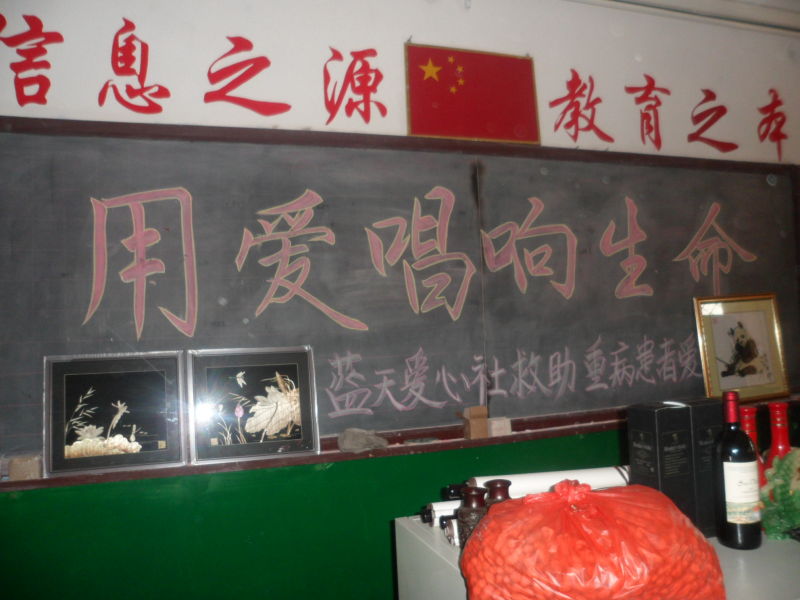 信息之源 教育之本
用爱唱响生命
蓝天爱心社救助重病患者爱